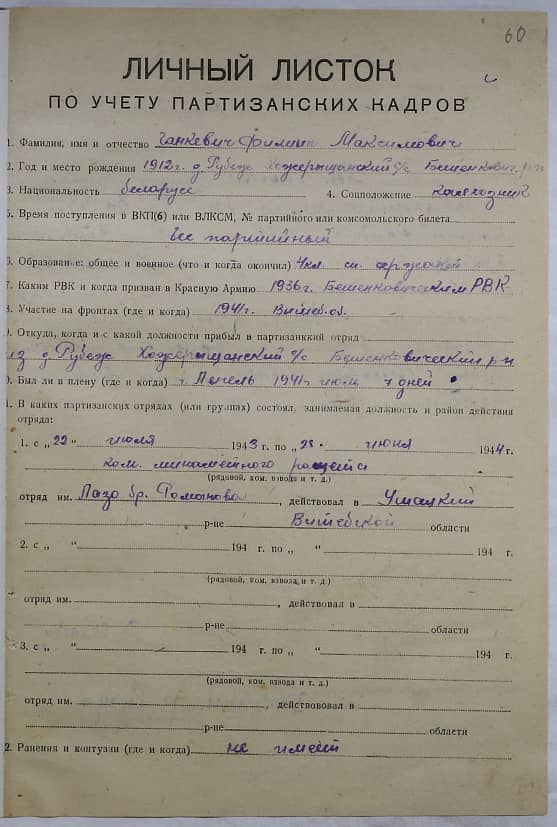 60
ЛИЧНЫЙ ЛИСТОК
ПО УЧЕТУ ПАРТИЗАНСКИХ КАДРОВ
1. Фамилия, имя и отчество Ганкевич Филипп Максимович
2. Год и место рождения 1912 г. д. Рубеж с/с Бешенкович. р-н
3. Национальность беларусс 4. Соцположение калхозник
5. Время поступления в ВКП(б) или ВЛКСМ, № партийного или комсомольского билета
бес парийный
6. Образование: общее и военное (что и когда окончил) 4 кл.
7. Каким РВК и когда призван в Красную Армию 1936 г. Бешенковическим РВК
8. Участие на фронтах (где и когда) 1941 г. Витеб. об.
9. Откуда, когда и с какой должности прибыл в партизанкий отряд
из д. Рубеж с/с Бешенковический р-н
0. Был ли в плену (где и когда) г. Лепель 1941 г. июль 7 дней
1. В каких партизанских отрядах (или группах) состоял, занимаемая должность и район действия
отряда:
1. с „ 22 “ июля 1943 г. по „ 28 “ июня 1944 г.
ком. минаметного
(рядовой, ком. взвода и т. д.)
отряд им. Лазо бр. Романова, действовал в
р-не Витебской области
2. с „ “ 194 г. по „ “ 194 г.
(рядовой, ком. взвода и т. д.)
отряд им. , действовал в
р-не области
3. с „ “ 194 г. по „ “ 194 г.
(рядовой, ком. взвода и т. д.)
отряд им. , действововал в
р-не области
2. Ранения и контузии (где и когда) не имеет